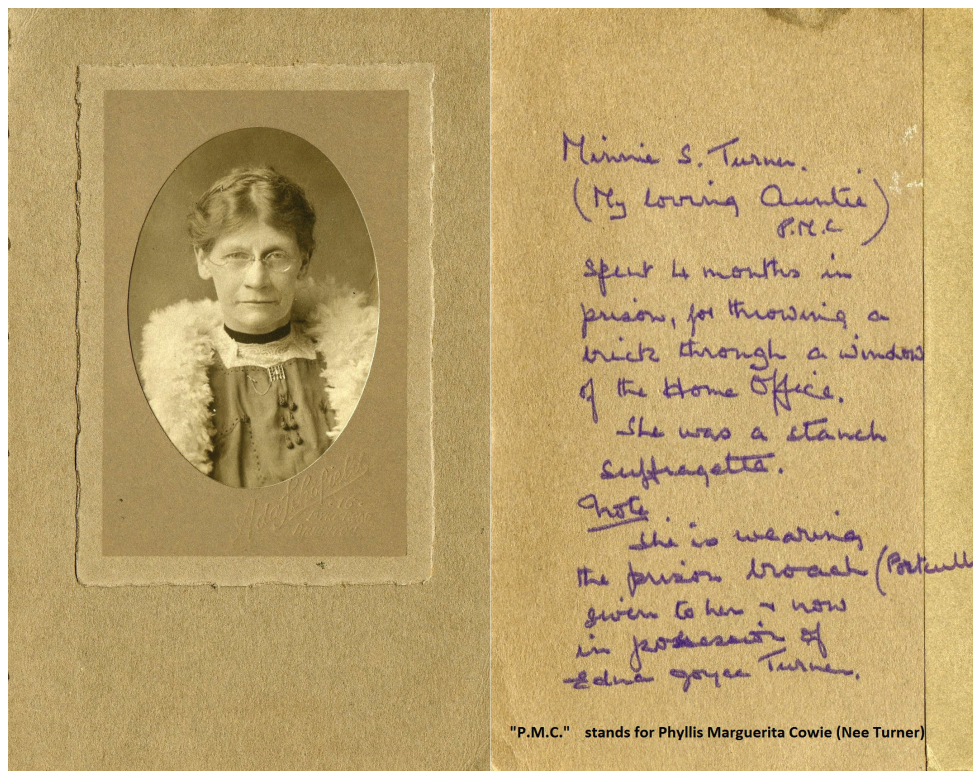 Minnie S. Turner.
(My loving Auntie)
P.M.C
Spent 4 months in
prison, for throwing a
brick through a window
of the Home Office.
She was a stanch
suffragette.
Note
She is wearing
the prison broach (Portcull
given to her & now
in possession of
Edna Joyce Turner.
"P.M.C." stands for Phyllis Marguerita Cowie (Nee Turner)